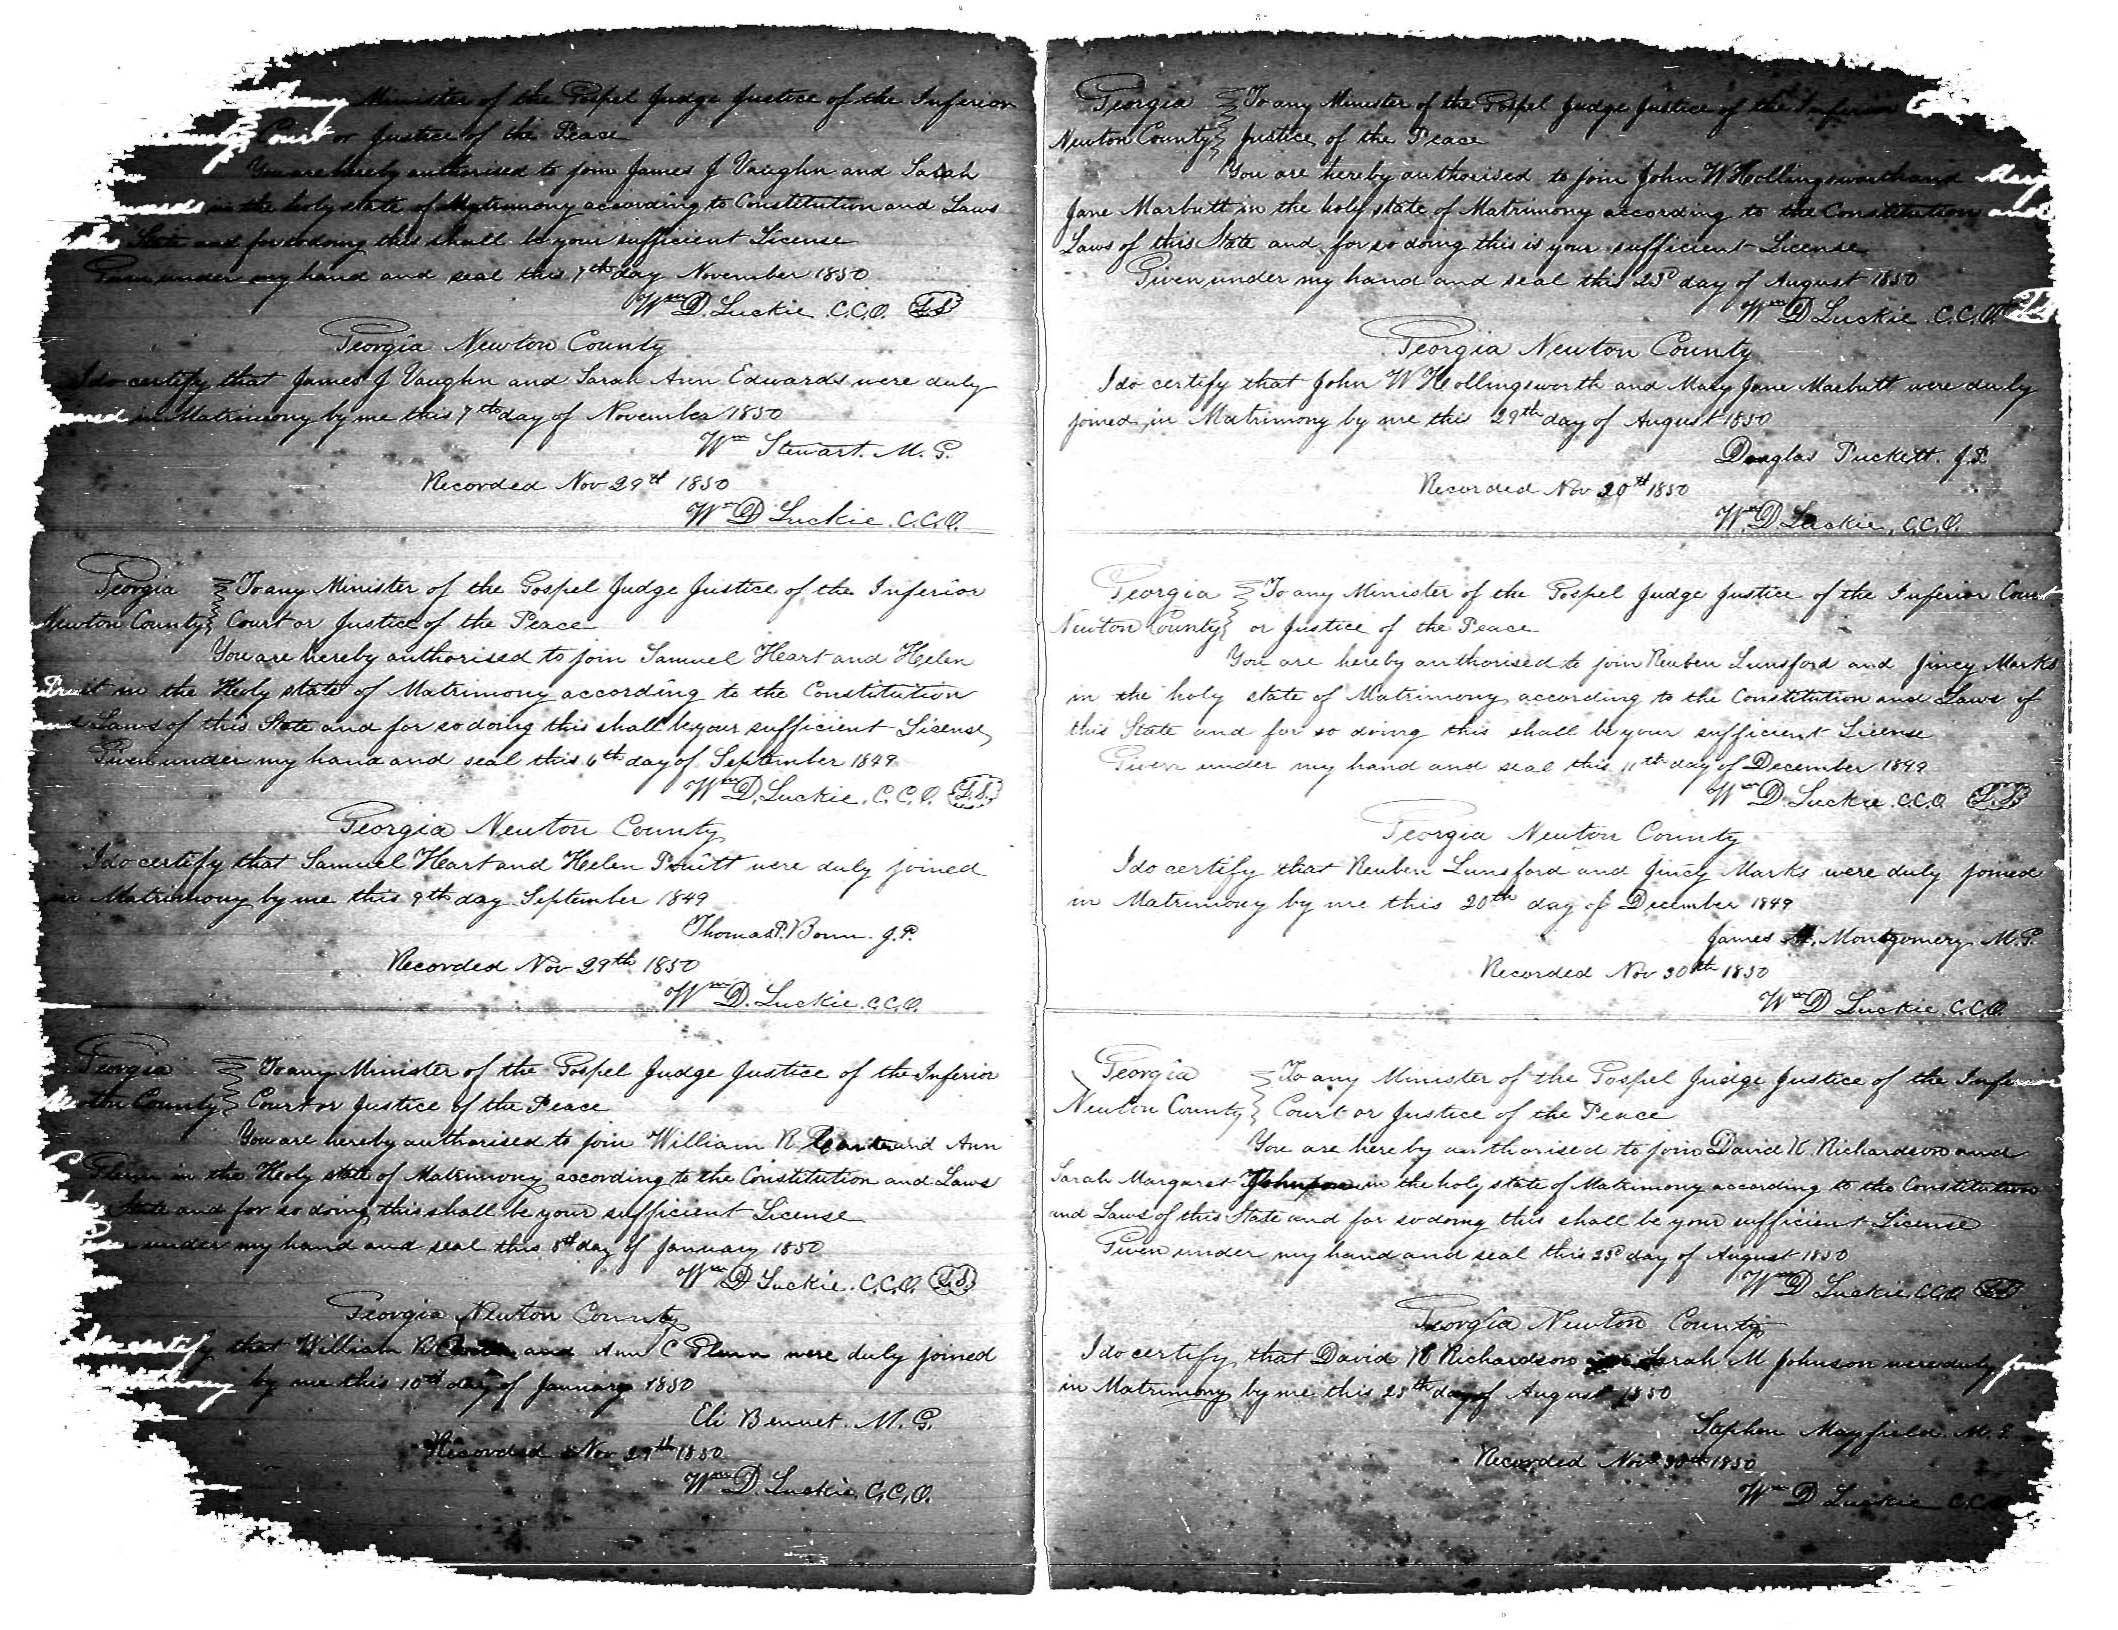 Minister of the Gospel Judge Justice of the Inferior
Court or Justice of the Peace
You are hereby authorised to join James J Vaughn and Sarah
in the holy state of Matrimony according to Constitution and Laws
State and for so doing this shall be your sufficient License
Given under my hand and seal this 7th day November 1850
Wm D. Luckie C.C.O. L.S.
Georgia Newton County
I do certify that James J Vaughn and Sarah Ann Edwards were duly
in Matrimony by me this 7th day of November 1850
Wm Stewart. M.G.
Recorded Nov 29th 1850
Wm D Luckie. C.C.O.
Georgia To any Minister of the Gospel Judge Justice of the Inferior
Newton County Court or Justice of the Peace
You are hereby authorised to join Samuel Heart and Helen
in the Holy state of Matrimony according to the Constitution
and Laws of this State and for so doing this shall be your sufficient License
Given under my hand and seal this 6th day of September 1849
Wm D. Luckie. C.C.O. L.S.
Georgia Newton County
I do certify that Samuel Heart and Helen Pruitt were duly joined
in Matrimony by me this 9th day September 1849
Thomas P. J.P.
Recorded Nov 29th 1850
Wm D. Luckie. C.C.O.
Georgia To any Minister of the Gospel Judge Justice of the Inferior
Newton County Court or Justice of the Peace
You are hereby authorised to join William R and Ann
in the Holy state of Matrimony according to the Constitution and Laws
State and for so doing this shall be your sufficient License
under my hand and seal this 8th day of January 1850
Wm D Luckie. C.C.O. L.S.
Georgia Newton County
certify that William R and Ann C were duly joined
by me this 10th day of January 1850
Eli Bennet. M.G.
Recorded Nov 29th 1850
Wm D. Luckie C.C.O.
Georgia To any Minister of the Gospel Judge Justice of the Inferior
Newton County Justice of the Peace
You are hereby authorised to join John W Hollingsworth and Mary
Jane Marbutt in the holy state of Matrimony according to the Constitution and
Laws of this State and for so doing this is your sufficient License
Given under my hand and seal this 23d day of August 1850
Wm D Luckie C.C.O. L.S.
Georgia Newton County
I do certify that John W Hollingsworth and Mary Jane Marbutt were duly
joined in Matrimony by me this 29th day of August 1850
Douglas Puckett. J.P.
Recorded Nov 20th 1850
Wm D Luckie, C.C.O.
Georgia To any Minister of the Gospel Judge Justice of the Inferior Court
Newton County or Justice of the Peace
You are hereby authorised to join Reuben Lunsford and Jincy Marks
in the holy state of Matrimony according to the Constitution and Laws of
this State and for so doing this shall be your sufficient License
Given under my hand and seal this 11th day of December 1849
Wm D Luckie C.C.O. L.S.
Georgia Newton County
I do certify that Reuben Lunsford and Jincy Marks were duly joined
in Matrimony by me this 20th day of December 1849
James Montgomery M.G.
Recorded Nov 30th 1850
Wm D Luckie C.C.O.
Georgia To any Minister of the Gospel Judge Justice of the Inferior
Newton County Court or Justice of the Peace
You are hereby authorised to join David N Richardson and
Sarah Margaret Johnson in the holy state of Matrimony according to the Constitution
and Laws of this State and for so doing this shall be your sufficient License
Given under my hand and seal this 23d day of August 1850
Wm D Luckie C.C.O. L.S.
Georgia Newton County
I do certify that David N Richardson Sarah M Johnson were duly joined
in Matrimony by me this 25th day of August 1850
Stephen Mayfield. M.G.
Recorded Nov 30th 1850
Wm D Luckie C.C.O.